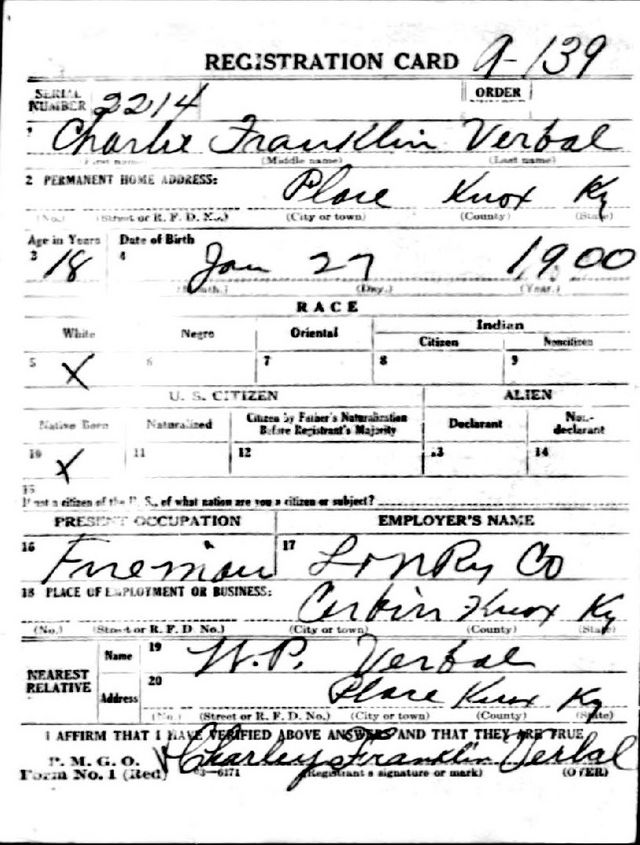 REGISTRATION CARD A-139
SERIAL NUMBER 2214 ORDER
1 Charlie Franklin Verbal
(First name) (Middle name) (Last name)
2 PERMANENT HOME ADDRESS: Place Knox Ky
(No.) (Street or R. F. D. No.) (City or town) (County) (State)
Age in Years Date of Birth
3 18 4 Jan 27 1900
(Month.) (Day.) (Year.)
RACE
White Negro Oriental Indian
Citizen Noncitizen
5 X 6 7 8 9
U. S. CITIZEN ALIEN
Native Born Naturalized Citizen by Father's Naturalization Before Registrant's Majority Declarant Non-declarant
10 X 11 12 13 14
15
If not a citizen of the U. S., of what nation are you a citizen or subject?
PRESENT OCCUPATION EMPLOYER'S NAME
16 Fireman 17 L & N Ry Co
18 PLACE OF EMPLOYMENT OR BUSINESS:
Corbin Knox Ky
(No.) (Street or R. F. D. No.) (City or town) (County) (State)
NEAREST RELATIVE Name 19 W. P. Verbal
Address 20 Place Knox Ky
(No.) (Street or R. F. D. No.) (City or town) (County) (State)
I AFFIRM THAT I HAVE VERIFIED ABOVE ANSWERS AND THAT THEY ARE TRUE
P. M. G. O.
Form No. 1 (Red) Charley Franklin Verbal
03-6171 (Registrant's signature or mark) (OVER)